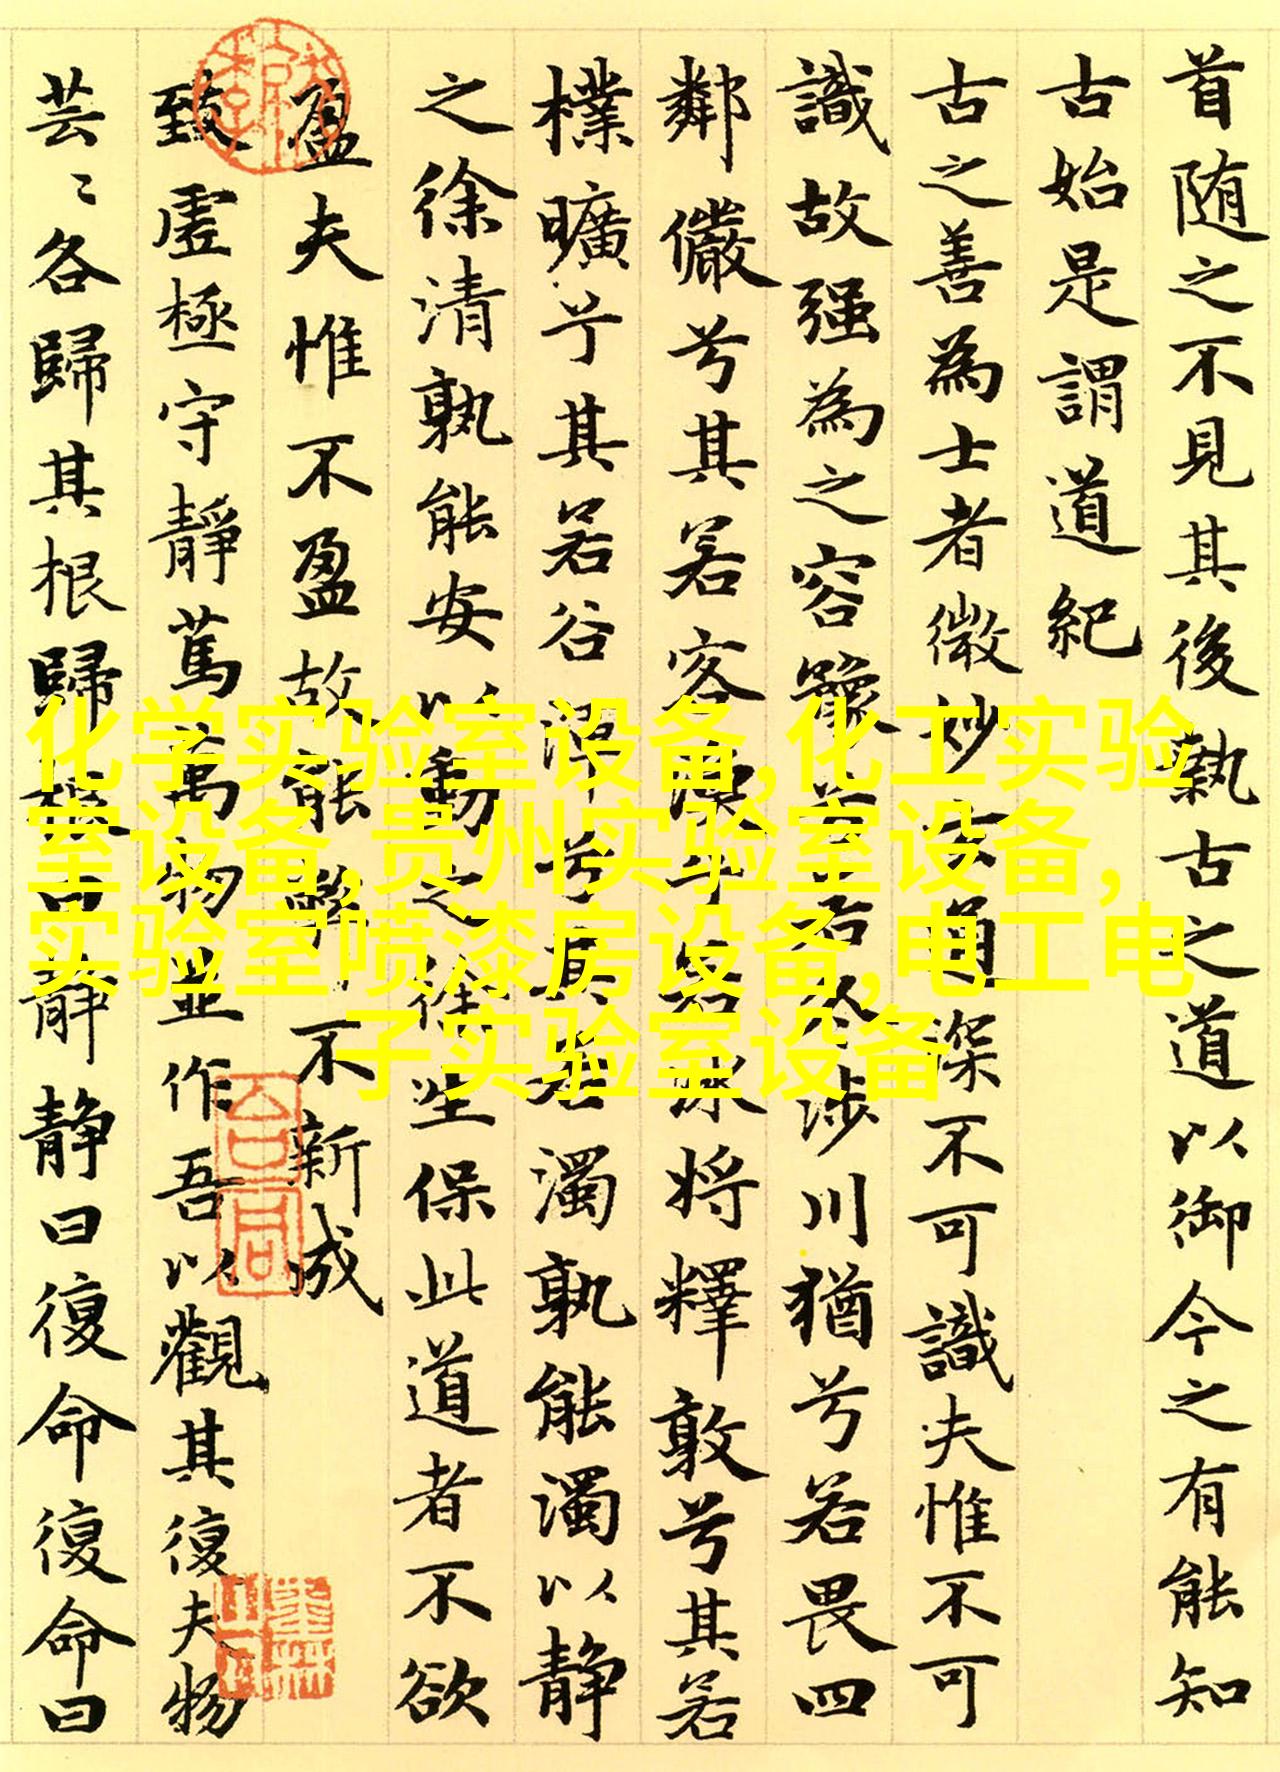 首随之不見其後執古之道以御今之有能知
古始是謂道紀
古之善為士者微妙玄通深不可識夫惟不可
識故强為之容豫兮若冬涉川猶兮若畏四
鄰儼兮其若客渙乎若冰將釋敦兮其若
樸曠兮其若谷渾兮其若濁孰能濁以静
之徐清孰能安以動之徐生保此道者不欲
盈夫惟不盈故能弊不新成
致虛極守靜篤萬物並作吾以觀其復夫物
芸〻各歸其根歸根曰静静曰復命復命曰
化学实验室设备,化工实验
室设备,贵州实验室设备,
实验室喷漆房设备,电工电
子实验室设备